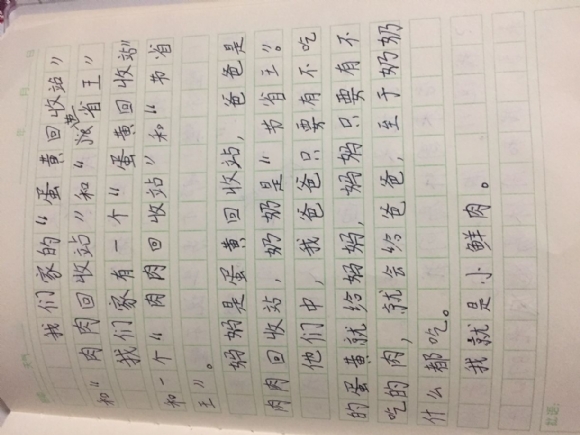 我们家的“蛋黄回收站”
和“肉肉回收站”和“节省王”
我们家有一个“蛋黄回收站”
和一个“肉肉回收站”和“节省
王”。
妈妈是蛋黄回收站，爸爸是
肉肉回收站，奶奶是“节省王”。
他们中，我爸爸只要有不吃
的蛋黄就给妈妈，妈妈只要有不
吃的肉，就会给爸爸，至于奶奶
什么都吃。
我就是小鲜肉。